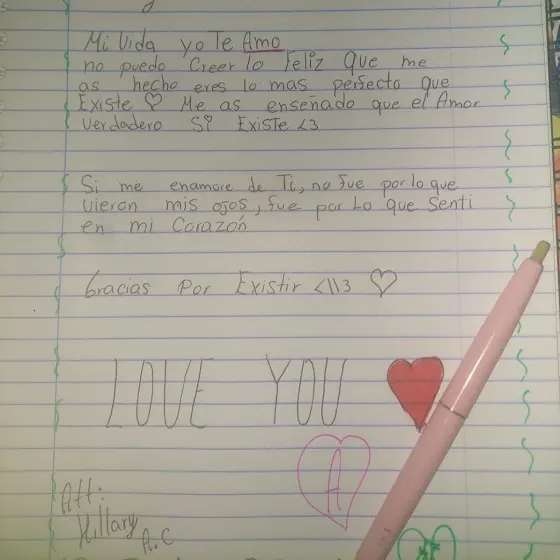 Mi Vida yo Te Amo
no puedo Creer lo Feliz que me
as hecho eres lo mas perfecto que
Existe ♡ Me as enseñado que el Amor
verdadero Si Existe <3
Si me enamore de Ti, no fue por lo que
vieron mis ojos, fue por Lo que Senti
en mi Corazón
Gracias Por Existir <\\3 ♡
LOVE YOU
A
Att:
Hillary
A.C